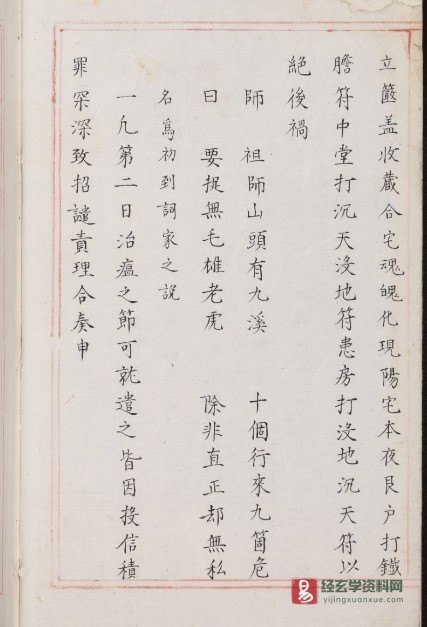 立篋盖收藏合宅魂魄化現陽宅本夜艮户打鐵
膽符中堂打沉天没地符患房打没地沉天符以
絕後禍
師　祖師山頭有九溪　十個行來九箇危
曰　要捉無毛雄老虎　除非直正却無私
名爲初到詞家之說
一凡第二日治瘟之節可就遣之皆因投信積
罪罙深致招譴責理合奏申
易 经玄学资料网
yijingxuanxue.com